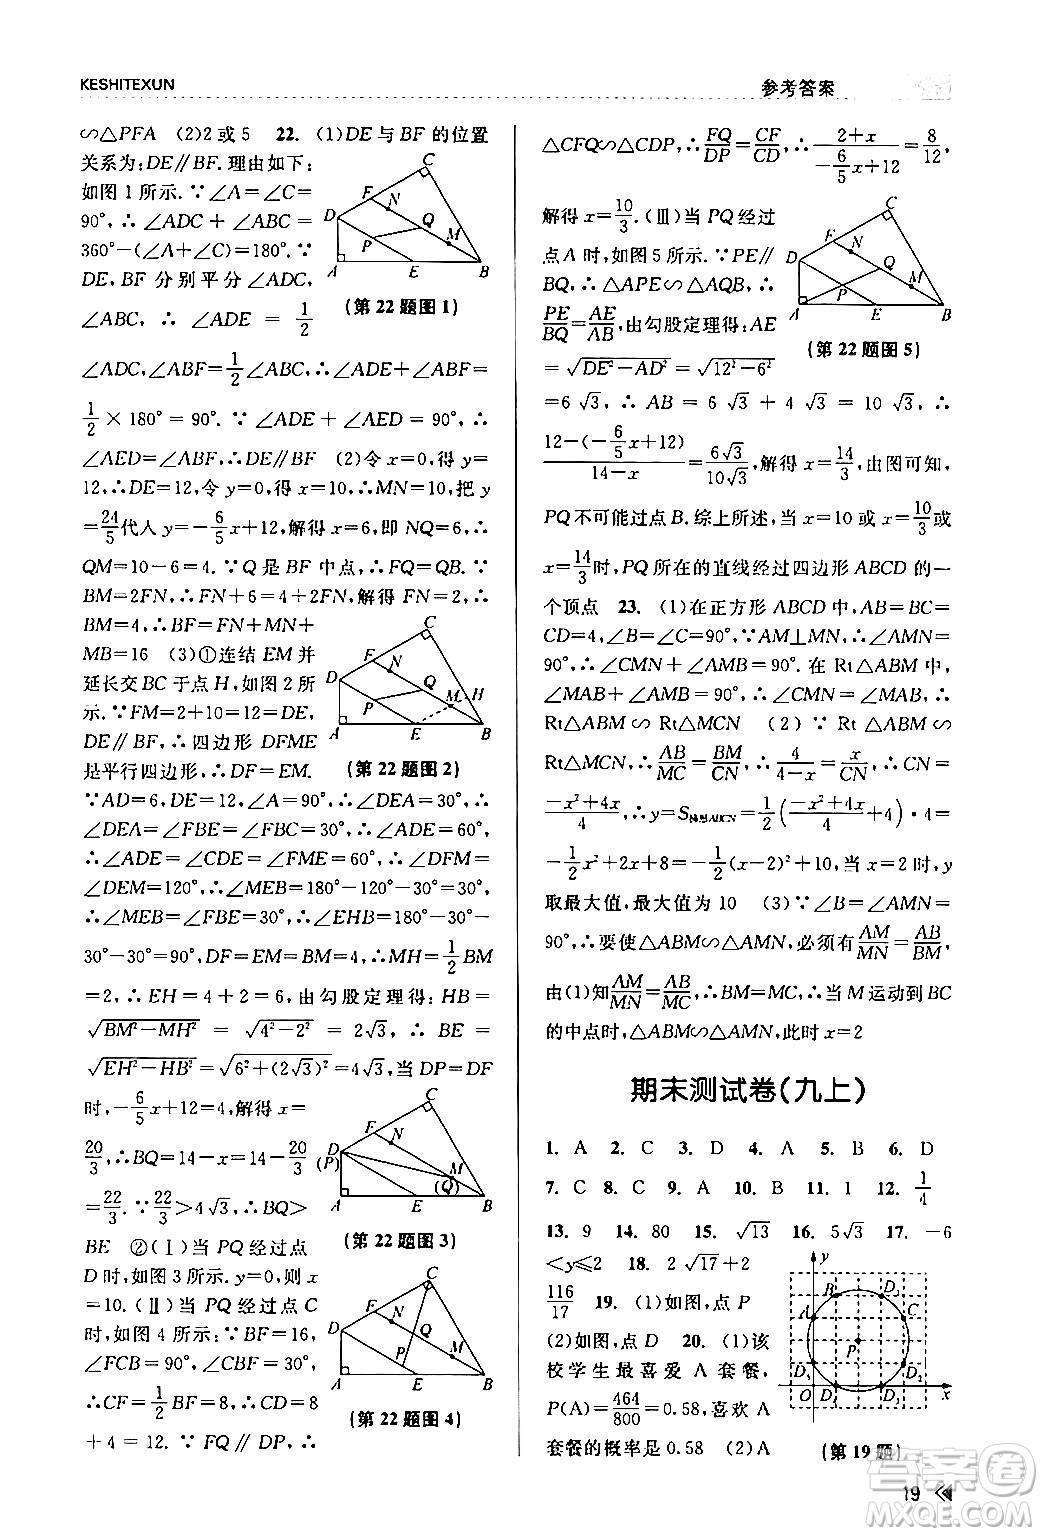 KESHITEXUN
参考答案
∽△PFA (2)2 或 5 22. (1)DE 与 BF 的位置
关系为:DE∥BF.理由如下:
如图 1 所示.∵∠A=∠C=
90°,∴∠ADC + ∠ABC =
360°-(∠A+∠C)=180°.∵
DE、BF 分别平分∠ADC、
∠ABC, ∴ ∠ADE = 1/2
∠ADC,∠ABF=1/2∠ABC,∴∠ADE+∠ABF=
1/2 × 180° = 90°. ∵ ∠ADE + ∠AED = 90°, ∴
∠AED=∠ABF,∴DE∥BF (2)令 x=0,得 y=
12,∴DE=12,令 y=0,得 x=10,∴MN=10,把 y
=24/5代入 y=-6/5x+12,解得 x=6,即 NQ=6,∴
QM=10-6=4.∵Q 是 BF 中点,∴FQ=QB.∵
BM=2FN,∴FN+6=4+2FN,解得 FN=2,∴
BM=4,∴BF=FN+MN+
MB=16 (3)①连结 EM 并
延长交 BC 于点 H,如图 2 所
示.∵FM=2+10=12=DE,
DE∥BF,∴四边形 DFME
是平行四边形,∴DF=EM.
∵AD=6,DE=12,∠A=90°,∴∠DEA=30°,∴
∠DEA=∠FBE=∠FBC=30°,∴∠ADE=60°,
∴∠ADE=∠CDE=∠FME=60°,∴∠DFM=
∠DEM=120°,∴∠MEB=180°-120°-30°=30°,
∴∠MEB=∠FBE=30°,∴∠EHB=180°-30°-
30°-30°=90°,DF=EM=BM=4,∴MH=1/2BM
=2,∴EH=4+2=6,由勾股定理得:HB=
√BM²-MH² = √4²-2² = 2√3, ∴ BE =
√EH²-HB² = √6²+(2√3)² = 4√3 当 DP=DF
时,-6/5x+12=4,解得 x=
20/3,∴BQ=14-x=14-20/3
=22/3.∵22/3>4√3,∴BQ>
BE ②(Ⅰ)当 PQ 经过点
D 时,如图 3 所示.y=0,则 x
=10.(Ⅱ)当 PQ 经过点 C
时,如图 4 所示.∵BF=16,
∠FCB=90°,∠CBF=30°,
∴CF=1/2BF=8,∴CD=8
+4=12.∵FQ∥DP,∴
D F C N Q P M A E B
(第 22 题图 1)
D F C N Q P M H A E B
(第 22 题图 2)
D (P) F C N M (Q) A E B
(第 22 题图 3)
D F C N Q P M A E B
(第 22 题图 4)
△CFQ∽△CDP,∴FQ/DP=CF/CD,∴(2+x)/(-6/5x+12)=8/12,
解得 x=10/3.(Ⅲ)当 PQ 经过
点 A 时,如图 5 所示.∵PE∥
BQ,∴△APE∽△AQB,∴
PE/BQ=AE/AB,由勾股定理得:AE
=√DE²-AD²=√12²-6²
=6√3,∴AB=6√3+4√3=10√3,∴
(12-(-6/5x+12))/(14-x)=6√3/10√3,解得 x=14/3,由图可知,
PQ不可能过点 B.综上所述,当 x=10 或 x=10/3或
x=14/3时,PQ所在的直线经过四边形 ABCD 的一
个顶点 23. (1)在正方形 ABCD 中,AB=BC=
CD=4,∠B=∠C=90°,∵AM⊥MN,∴∠AMN=
90°,∴∠CMN+∠AMB=90°.在 Rt△ABM 中,
∠MAB+∠AMB=90°,∴∠CMN=∠MAB,∴
Rt△ABM∽Rt△MCN (2)∵Rt△ABM∽
Rt△MCN,∴AB/MC=BM/CN,∴4/(4-x)=x/CN,∴CN=
(-x²+4x)/4,∴y=S梯形ABCN=1/2((-x²+4x)/4+4)·4=
-1/2x²+2x+8=-1/2(x-2)²+10,当 x=2 时,y
取最大值,最大值为 10 (3)∵∠B=∠AMN=
90°,∴要使△ABM∽△AMN,必须有AM/MN=AB/BM,
由(1)知AM/MN=AB/MC,∴BM=MC,∴当 M 运动到 BC
的中点时,△ABM∽△AMN,此时 x=2
D F C N Q P M A E B
(第 22 题图 5)
期末测试卷(九上)
1. A 2. C 3. D 4. A 5. B 6. D
7. C 8. C 9. A 10. B 11. 1 12. 1/4
13. 9 14. 80 15. √13 16. 5√3 17. -6
<y≤2 18. 2√17+2
116/17 19. (1)如图,点 P
(2)如图,点 D 20. (1)该
校学生最喜爱 A 套餐,
P(A)=464/800=0.58,喜欢 A
套餐的概率是 0.58 (2)A
y B D₁ A C P D₄ D₂ O D₃ x
(第 19 题)
答案圈
19